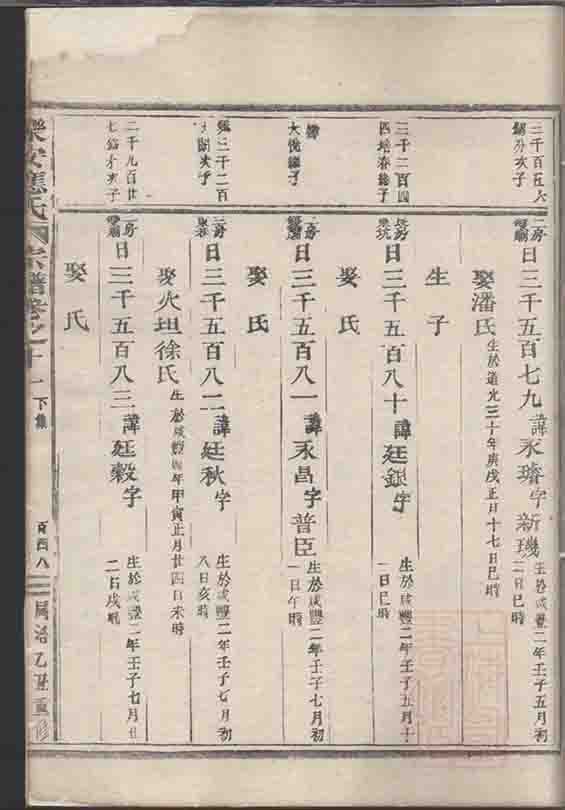 三千百五六
錫分亥子
二房
日三千五百七九諱永璿字新璣
生於咸豐二年壬子五月初
二日巳時
娶潘氏
生於道光三十年庚戌正月十七日巳時
生子
三千二百四
四培春繼子
日三千五百八十諱廷銀字
生於咸豐二年壬子五月十
一日巳時
娶氏
大悅繼子
二房
日三千五百八一諱永昌字普臣
生於咸豐二年壬子七月初
一日午時
娶氏
三千二百
亥子
二房
日三千五百八二諱廷秋字
生於咸豐二年壬子七月初
八日亥時
娶火坦徐氏
生於咸豐四年甲寅正月廿四日未時
二千九百廿
亥子
二房
日三千五百八三諱廷穀字
生於咸豐二年壬子七月廿
二日戌時
娶氏
樂安應氏宗譜卷之十一下集
同治乙丑重修